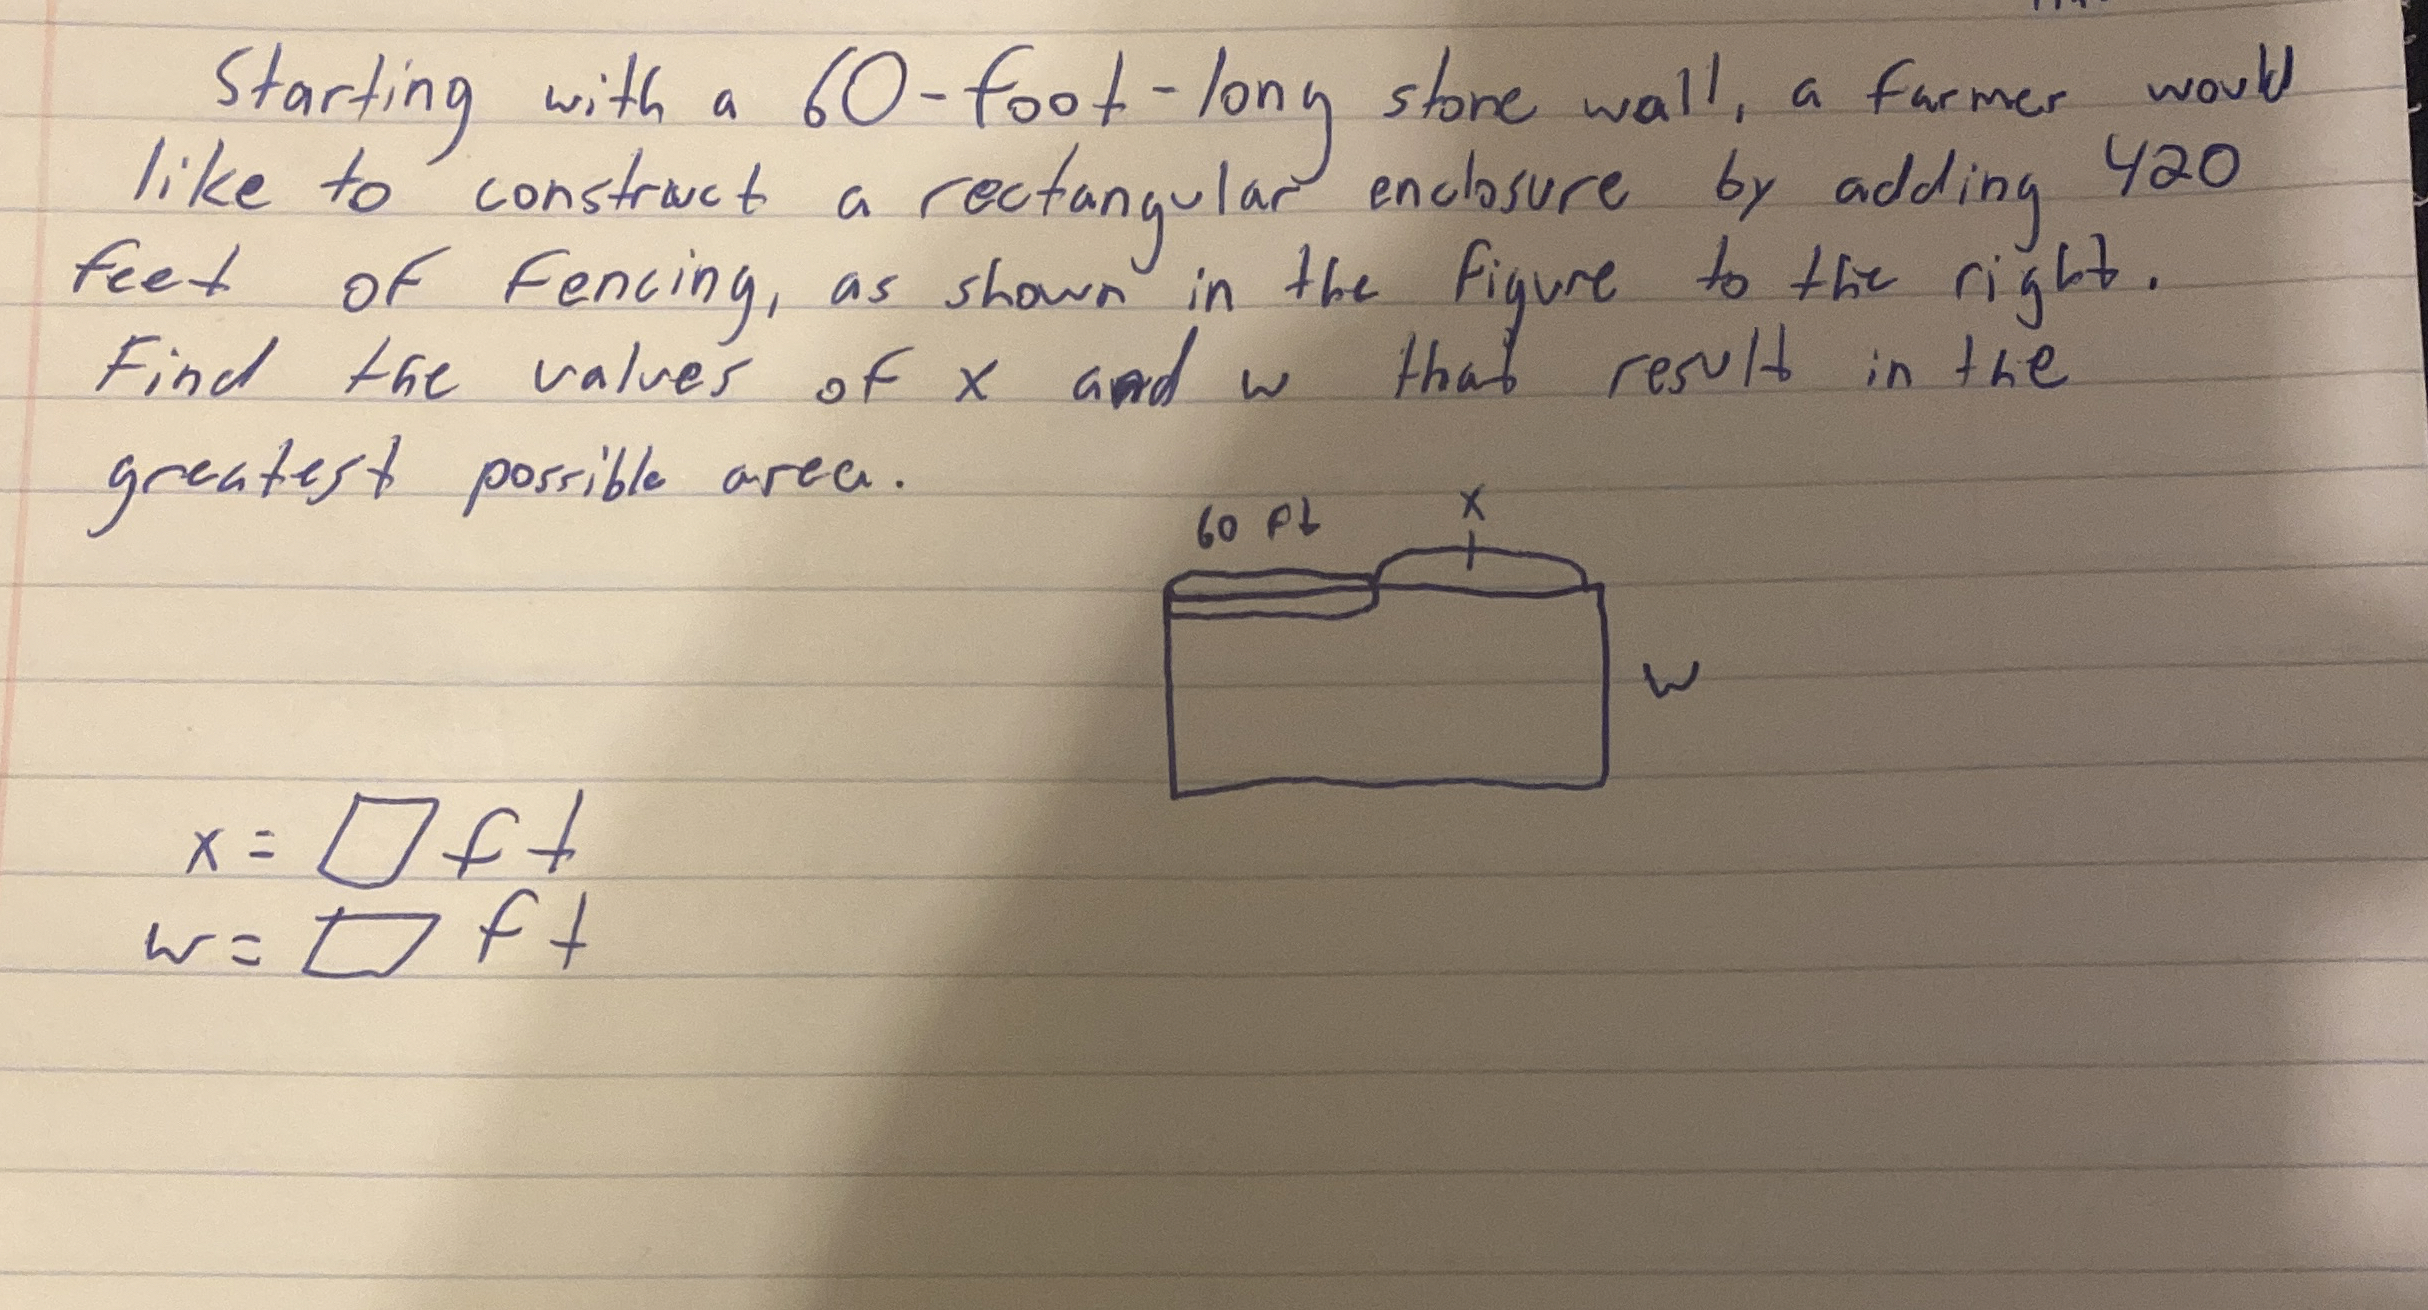 Starting with a 60-foot-long stone wall, a farmer would
like to construct a rectangular enclosure by adding 420
feet of fencing, as shown in the figure to the right.
Find the values of x and w that result in the
greatest possible area.
60 ft x
w
x = ft
w = ft